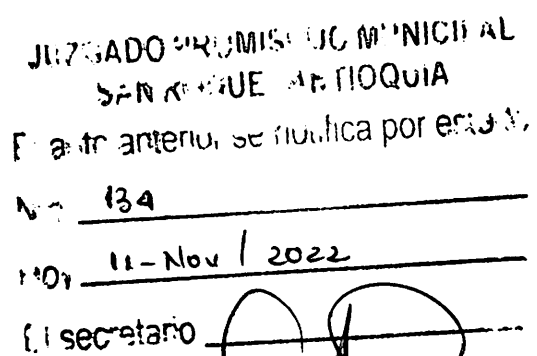 JUZGADO PROMISCUO MUNICIPAL
SAN ROQUE ANTIOQUIA
El auto anterior se notifica por estado
No 134
Hoy 11-Nov / 2022
El secretario